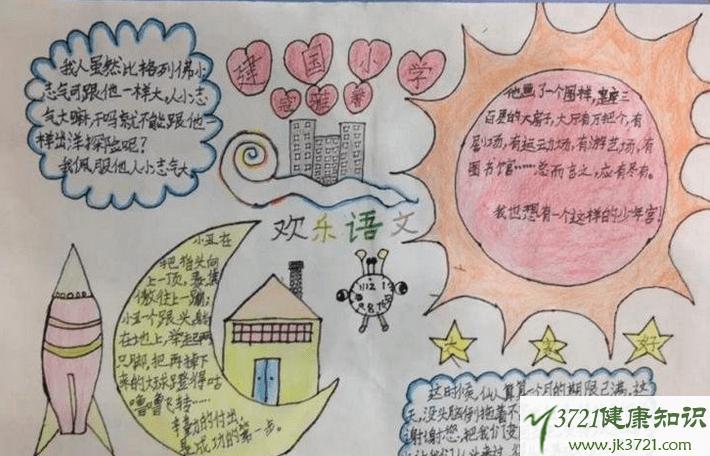 我人虽然比格列佛小
志气可跟他一样大,人小志
气大嘛,干吗就不能跟他一
样出洋探险呢?
我佩服他人小志气大
建国小学
欢乐语文
他画了一个图样,
百层的大房子,大厅有万把个,有
剧场,有运动场,有游艺场,有
图书馆……总而言之,应有尽有。
我也想有一个这样的少年宫!
小五在
把指头向
上一顶,
傲往上一蹦;
小五一个跟头
在地上,举起两
只脚,把再掉下
来的大球蹬得咕
噜噜飞转……
辛勤的付出,
是成功的第一步。
112 1
9 8 7 6 5
大 家 好
这时候,仙人算算一个月的期限已满,这
天,没头脑倒抱着不
谢谢您,把我们变
3721健康知识
www.jk3721.com